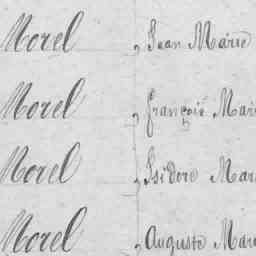 Morel, Jean Marie
Morel, françois Mari
Morel, Isidore Mar
Morel, Auguste Mar